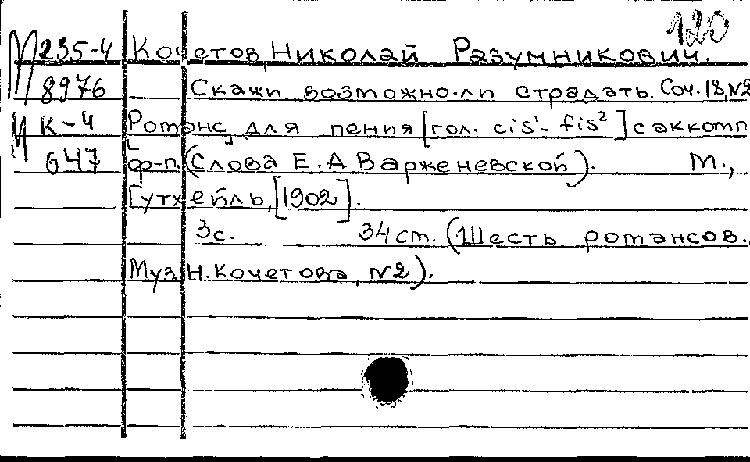 120
М 235-4 Кочетов, Николай Разумникович.
8976 Скажи возможно-ли страдать. Соч. 18, №2
М К-4 Романс для пения [гол. cis¹- fis²] с аккомп
647 ф-п. (Слова Е. А Варженевской). М.,
Гутхейль, [1902].
3с. 34 ст. (Шесть романсов.
Муз. Н. Кочетова, №2).